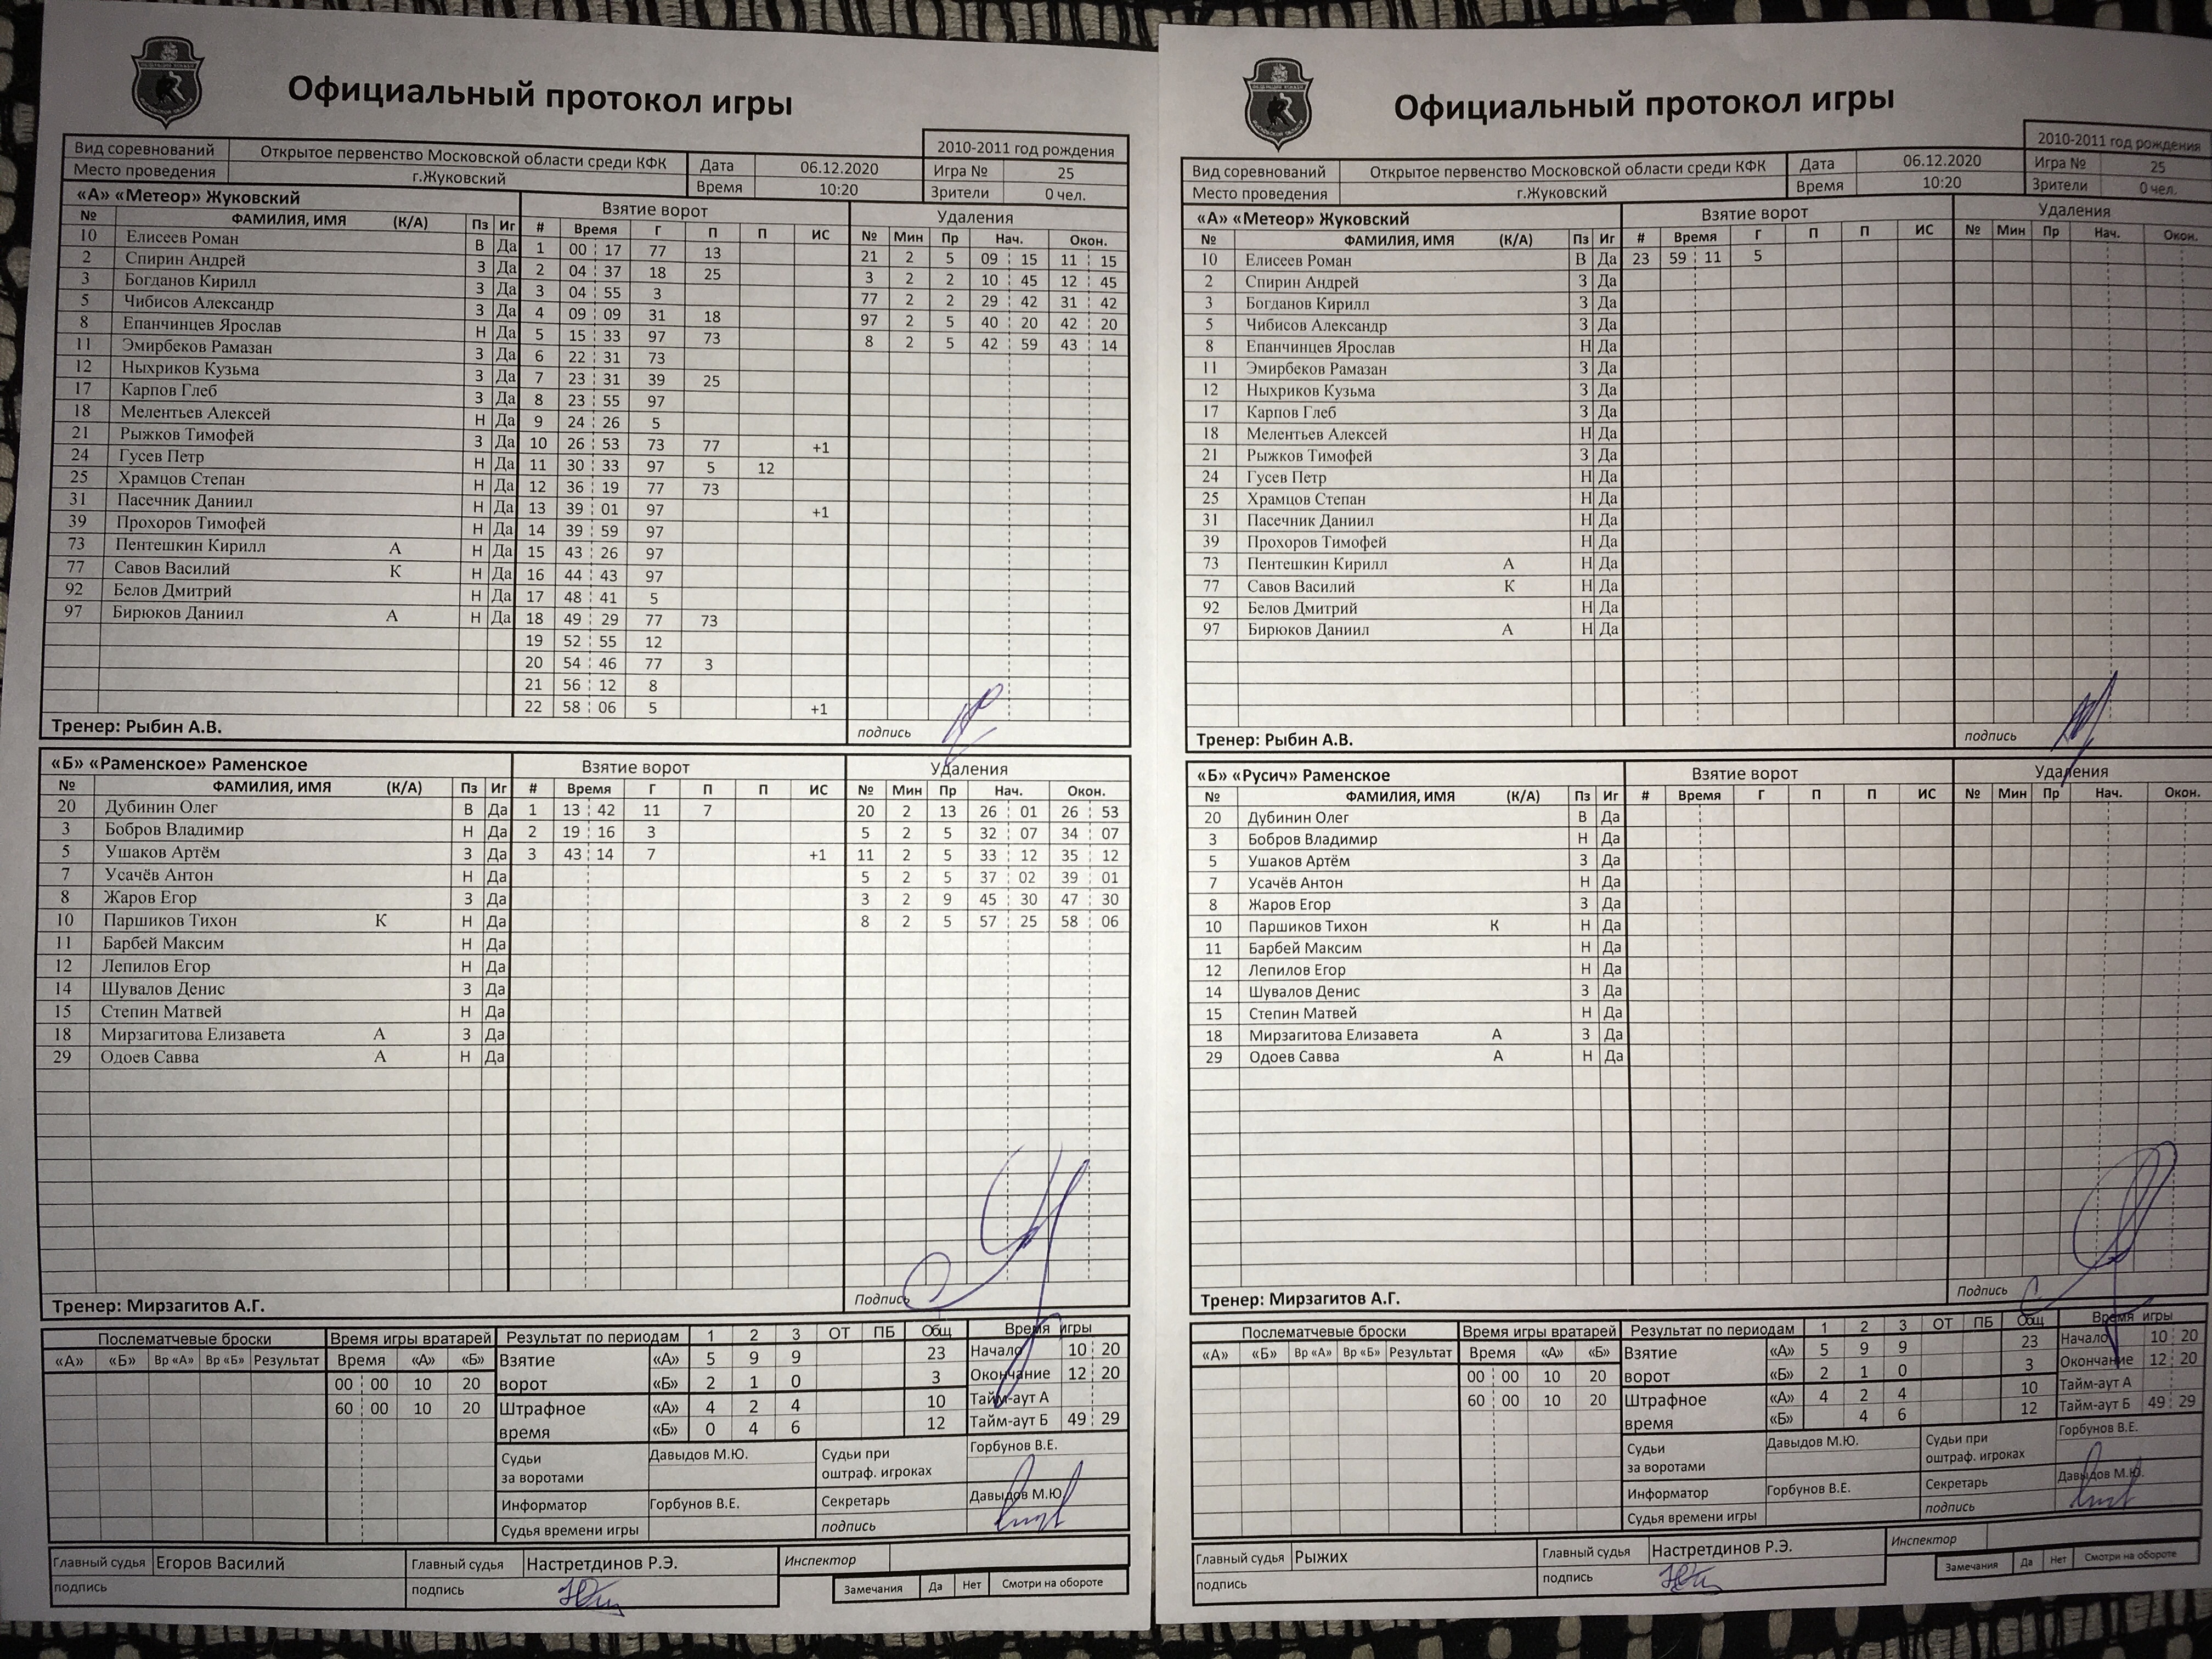 Официальный протокол игры
2010-2011 год рождения
Вид соревнований Открытое первенство Московской области среди КФК Дата 06.12.2020 Игра № 25
Место проведения г.Жуковский Время 10:20 Зрители 0 чел.
«А» «Метеор» Жуковский Взятие ворот Удаления
№ ФАМИЛИЯ, ИМЯ (К/А) Пз Иг # Время Г П П ИС № Мин Пр Нач. Окон.
10 Елисеев Роман В Да 1 00 17 77 13 21 2 5 09 15 11 15
2 Спирин Андрей З Да 2 04 37 18 25 3 2 2 10 45 12 45
3 Богданов Кирилл З Да 3 04 55 3 77 2 2 29 42 31 42
5 Чибисов Александр З Да 4 09 09 31 18 97 2 5 40 20 42 20
8 Епанчинцев Ярослав Н Да 5 15 33 97 73 8 2 5 42 59 43 14
11 Эмирбеков Рамазан З Да 6 22 31 73
12 Ныхриков Кузьма З Да 7 23 31 39 25
17 Карпов Глеб З Да 8 23 55 97
18 Мелентьев Алексей Н Да 9 24 26 5
21 Рыжков Тимофей З Да 10 26 53 73 77 +1
24 Гусев Петр Н Да 11 30 33 97 5 12
25 Храмцов Степан Н Да 12 36 19 77 73
31 Пасечник Даниил Н Да 13 39 01 97 +1
39 Прохоров Тимофей Н Да 14 39 59 97
73 Пентешкин Кирилл А Н Да 15 43 26 97
77 Савов Василий К Н Да 16 44 43 97
92 Белов Дмитрий Н Да 17 48 41 5
97 Бирюков Даниил А Н Да 18 49 29 77 73
19 52 55 12
20 54 46 77 3
21 56 12 8
22 58 06 5 +1
Тренер: Рыбин А.В. подпись
«Б» «Раменское» Раменское Взятие ворот Удаления
№ ФАМИЛИЯ, ИМЯ (К/А) Пз Иг # Время Г П П ИС № Мин Пр Нач. Окон.
20 Дубинин Олег В Да 1 13 42 11 7 20 2 13 26 01 26 53
3 Бобров Владимир Н Да 2 19 16 3 5 2 5 32 07 34 07
5 Ушаков Артём З Да 3 43 14 7 +1 11 2 5 33 12 35 12
7 Усачёв Антон Н Да 5 2 5 37 02 39 01
8 Жаров Егор З Да 3 2 9 45 30 47 30
10 Паршиков Тихон К Н Да 8 2 5 57 25 58 06
11 Барбей Максим Н Да
12 Лепилов Егор Н Да
14 Шувалов Денис З Да
15 Степин Матвей Н Да
18 Мирзагитова Елизавета А З Да
29 Одоев Савва А Н Да
Тренер: Мирзагитов А.Г. Подпись
Послематчевые броски Время игры вратарей Результат по периодам 1 2 3 ОТ ПБ Общ Время игры
«А» «Б» Вр «А» Вр «Б» Результат Время «А» «Б» Взятие ворот «А» 5 9 9 23 Начало 10 20
00 00 10 20 «Б» 2 1 0 3 Окончание 12 20
60 00 10 20 Штрафное время «А» 4 2 4 10 Тайм-аут А
«Б» 0 4 6 12 Тайм-аут Б 49 29
Судьи за воротами Давыдов М.Ю. Судьи при оштраф. игроках Горбунов В.Е.
Информатор Горбунов В.Е. Секретарь Давыдов М.Ю
Судья времени игры подпись
Главный судья Егоров Василий Главный судья Настретдинов Р.Э. Инспектор
подпись подпись Замечания Да Нет Смотри на обороте
Официальный протокол игры
2010-2011 год рождения
Вид соревнований Открытое первенство Московской области среди КФК Дата 06.12.2020 Игра № 25
Место проведения г.Жуковский Время 10:20 Зрители 0 чел.
«А» «Метеор» Жуковский Взятие ворот Удаления
№ ФАМИЛИЯ, ИМЯ (К/А) Пз Иг # Время Г П П ИС № Мин Пр Нач. Окон.
10 Елисеев Роман В Да 23 59 11 5
2 Спирин Андрей З Да
3 Богданов Кирилл З Да
5 Чибисов Александр З Да
8 Епанчинцев Ярослав Н Да
11 Эмирбеков Рамазан З Да
12 Ныхриков Кузьма З Да
17 Карпов Глеб З Да
18 Мелентьев Алексей Н Да
21 Рыжков Тимофей З Да
24 Гусев Петр Н Да
25 Храмцов Степан Н Да
31 Пасечник Даниил Н Да
39 Прохоров Тимофей Н Да
73 Пентешкин Кирилл А Н Да
77 Савов Василий К Н Да
92 Белов Дмитрий Н Да
97 Бирюков Даниил А Н Да
Тренер: Рыбин А.В. подпись
«Б» «Русич» Раменское Взятие ворот Удаления
№ ФАМИЛИЯ, ИМЯ (К/А) Пз Иг # Время Г П П ИС № Мин Пр Нач. Окон.
20 Дубинин Олег В Да
3 Бобров Владимир Н Да
5 Ушаков Артём З Да
7 Усачёв Антон Н Да
8 Жаров Егор З Да
10 Паршиков Тихон К Н Да
11 Барбей Максим Н Да
12 Лепилов Егор Н Да
14 Шувалов Денис З Да
15 Степин Матвей Н Да
18 Мирзагитова Елизавета А З Да
29 Одоев Савва А Н Да
Тренер: Мирзагитов А.Г. Подпись
Послематчевые броски Время игры вратарей Результат по периодам 1 2 3 ОТ ПБ Общ Время игры
«А» «Б» Вр «А» Вр «Б» Результат Время «А» «Б» Взятие ворот «А» 5 9 9 23 Начало 10 20
00 00 10 20 «Б» 2 1 0 3 Окончание 12 20
60 00 10 20 Штрафное время «А» 4 2 4 10 Тайм-аут А
«Б» 4 6 12 Тайм-аут Б 49 29
Судьи за воротами Давыдов М.Ю. Судьи при оштраф. игроках Горбунов В.Е.
Информатор Горбунов В.Е. Секретарь Давыдов М.Ю.
Судья времени игры подпись
Главный судья Рыжих Главный судья Настретдинов Р.Э. Инспектор
подпись подпись Замечания Да Нет Смотри на обороте